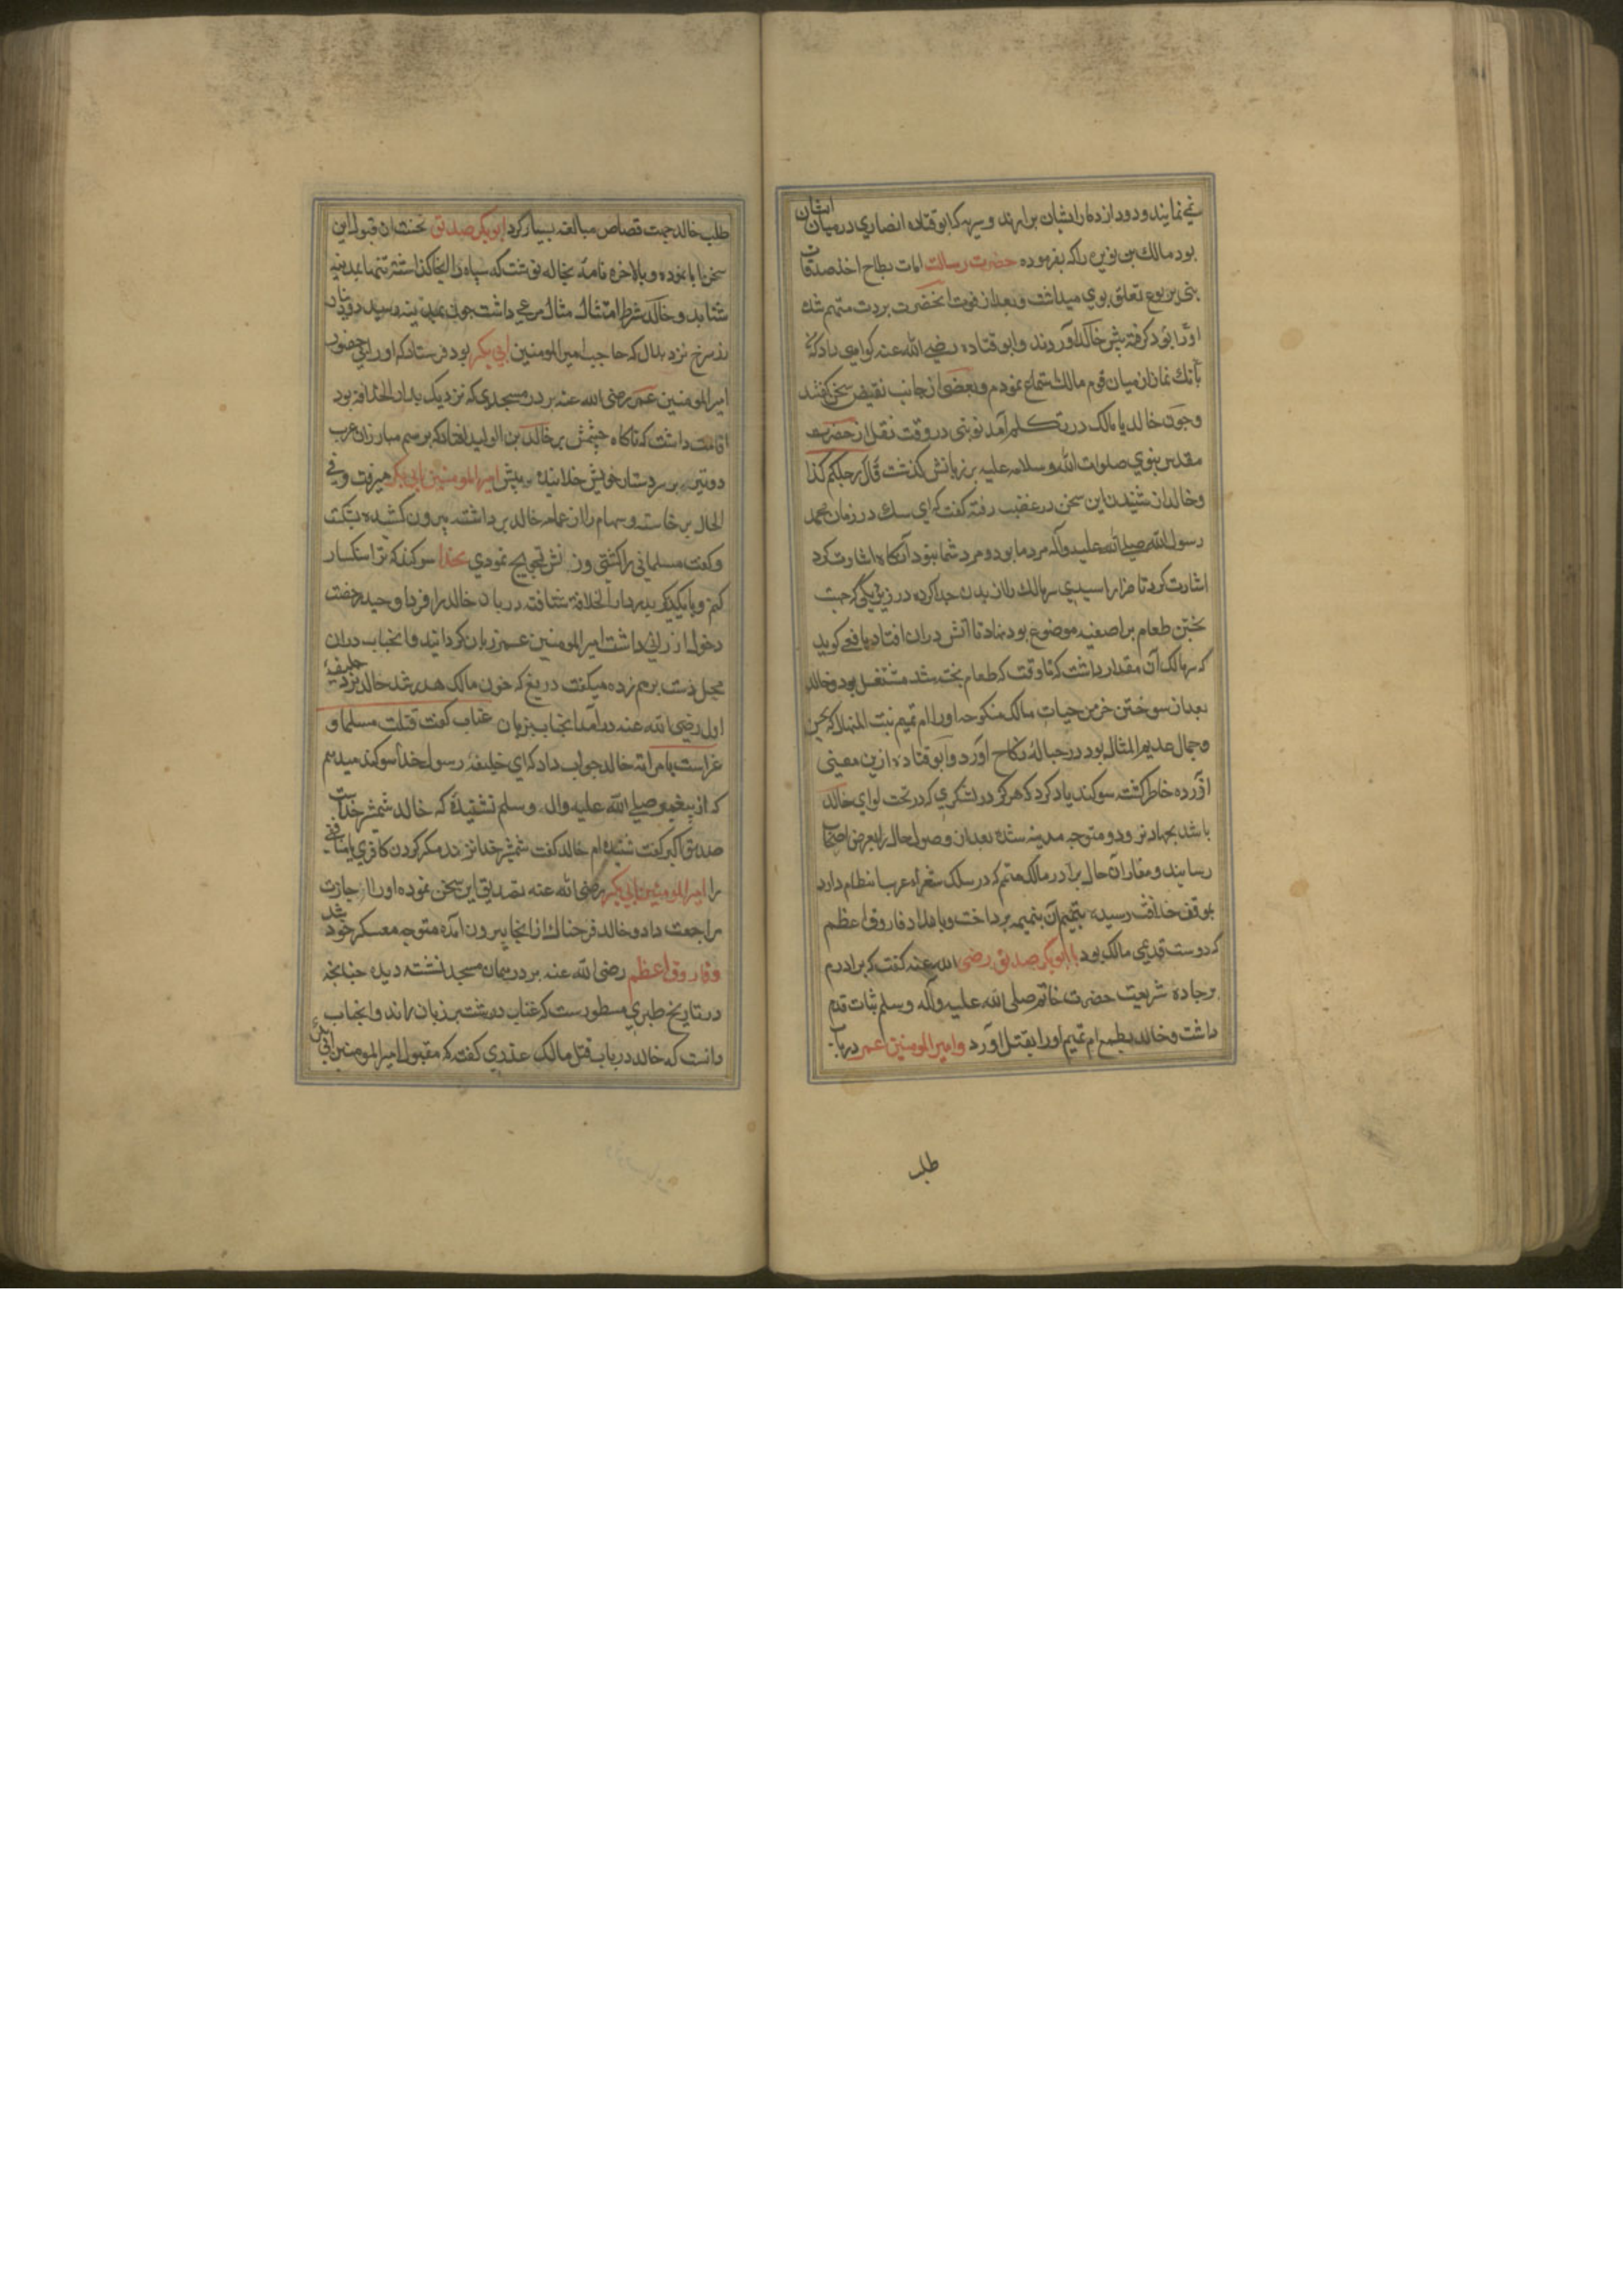 نمی نمایند و دود از دمار ایشان برارند و سریه که ابو قتاده انصاری در میان ایشان
بود مالک بن نویره را که بفرموده حضرت رسالت امات بطاح اخذ صدقات
بنی یربوع تعلق بوی میداشت و بعد از فوت آنحضرت بردت متهم شد
او را گرفته پیش خالد آوردند و ابو قتاده رضی الله عنه کواهی داد که
بانک نماز از میان قوم مالک استماع نمودم و بعضی از جانب نقیض سخن کفتند
و چون خالد با مالک در تکلم آمد نوبتی در وقت نقل از حضرت
مقدس نبوی صلوات الله و سلامه علیه بر زبانش کذشت قال رجلکم کذا
و خالد از شنیدن این سخن در غضب رفته کفت که ای سک در زمان محمد
رسول الله صلی الله علیه وآله مرد ما بود و مرد شما نبود آنکاه اشارت کرد
اشارت کرد تا ضرار اسیدی سر مالک را از بدن جدا کرده در زیر دیکی که جهت
پختن طعام بر اصفیه موضوع بود نهاد تا آتش دران افتاد یافعی کوید
که سر مالک آن مقدار داشت که تا وقت که طعام پخته شد مشتعل بود و خالد
بعد از سوختن خرمن حیات مالک منکوحه او را ام تمیم بنت المنهال که بحسن
و جمال عدیم المثال بود در حباله نکاح آورد و ابو قتاده ازین معنی
آزرده خاطر کشته سوکند یاد کرد که هرکز در لشکری که در تحت لوای خالد
باشد بجهاد نرود و متوجه مدینه شده بعد از وصول حال را بعرض اصحاب
رسانید و مقارن آن حال برادر مالک متمم که در سلک شعراء عرب انتظام دارد
بموقف خلافت رسیده بتتمیم آن بتمیمه پرداخت و بامداد فاروق اعظم
که دوست قدیمی مالک بود با ابو بکر صدیق رضی الله عنه کفت که برادرم
بر جاده شریعت حضرت خاتم صلی الله علیه وآله وسلم ثبات قدم
داشت و خالد بطمع ام تمیم او را بقتل آورد و امیر المومنین عمر در باب
طلب
طلب خالد جهت قصاص مبالغه بسیار کرد ابو بکر صدیق نخست از قبول این
سخن ابا نموده و بالاخره نامه بخالد نوشت که سپاه را اینجا کذاشته تنها بمدینه
شتابد و خالد شرط امتثال مثال مرعی داشت چون بمدینه رسید دو دینار
زر سرخ نزد بلال که حاجب امیر المومنین ابی بکر بود فرستاد که او را بی حضور
امیر المومنین عمر رضی الله عنه بر در مسجدی که نزدیک بدار الخلافه بود
اقامت داشت که ناکاه چشمش بر خالد بن الولید افتاد که برسم مبارزان عرب
دو تیر بر سر دستار خویش خلانیده پیش امیر المومنین ابی بکر میرفت و فی
الحال برخاسته و سهام را از عمامه خالد برداشته بیرون کشیده بشکست
و کفت مسلمانی را کشتی و زنش تزویج نمودی بخدا سوکند که ترا سنکسار
کنم و با یکدیکر بدر دار الخلافة شتافته دربان خالد را فردا وحید رخصت
دخول ارزانی داشت امیر المومنین عمر ز بازکردانید و انجناب دران
محل دست برهم زده میکفت دریغ که خون مالک هدر شد خالد نزد خلیفهٔ
اول رضی الله عنه درآمد انجناب بزبان عتاب کفت قتلت مسلما و
خالد جواب داد که ای خلیفه رسول خدا سوکند میدهم
که از پیغمبر صلی الله علیه وآله وسلم نشنیدهٔ که خالد شمشیر خداست
صدیق اکبر کفت شنیده ام خالد کفت شمشیر خدا نزند مکر کردن کافری یا منافقی
را امیر المومنین ابی بکر رضی الله عنه تصدیق این سخن نموده او را اجازت
مراجعت داد و خالد فرحناک از انجا بیرون آمده متوجه معسکر خود شد
و فاروق اعظم رضی الله عنه بر در همان مسجد نشسته دید چنانچه
در تاریخ طبری مسطورست که عتاب درشت بر زبان راند و انجناب
دانست که خالد در باب قتل مالک عذری کفت که مقبول امیر المومنین ابی بکر